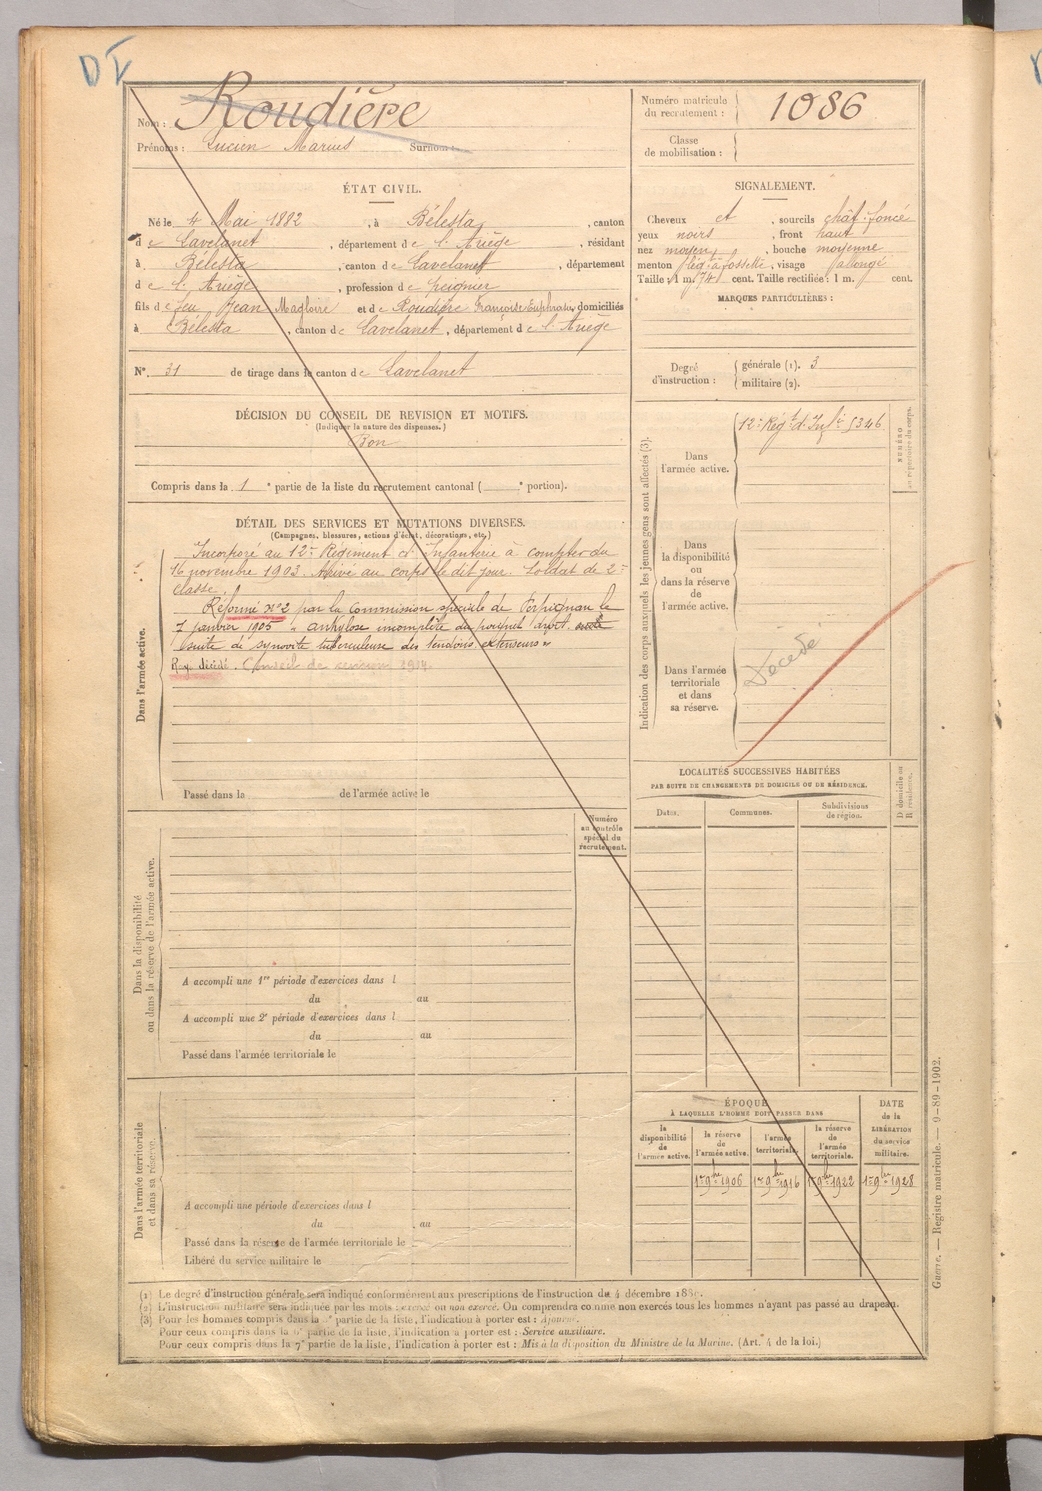 DV
Nom : Roudière
Prénoms : Lucien Marius Surnom :
Numéro matricule du recrutement : 1086
Classe de mobilisation :
ÉTAT CIVIL.
Né le 4 Mai 1882, à Bélesta, canton
de Lavelanet, département de l'Ariège, résidant
à Bélesta, canton de Lavelanet, département
de l'Ariège, profession de peignier
fils de feu Jean Magloire et de Roudière Françoise Euphrasie domiciliés
à Bélesta, canton de Lavelanet, département de l'Ariège
N° 31 de tirage dans le canton de Lavelanet
SIGNALEMENT.
Cheveux et, sourcils chât. foncé
yeux noirs, front haut
nez moyen, bouche moyenne
menton à fossette, visage allongé
Taille : 1 m. 74 cent. Taille rectifiée : 1 m. cent.
MARQUES PARTICULIÈRES :
Degré d'instruction : générale (1). 3
militaire (2).
DÉCISION DU CONSEIL DE REVISION ET MOTIFS.
(Indiquer la nature des dispenses.)
Bon
Compris dans la 1e partie de la liste du recrutement cantonal ( e portion).
DÉTAIL DES SERVICES ET MUTATIONS DIVERSES.
(Campagnes, blessures, actions d'éclat, décorations, etc.)
Dans l'armée active.
Incorporé au 12e Régiment d'Infanterie à compter du
16 novembre 1903. Arrivé au corps le dit jour. Soldat de 2e
classe.
Réformé n°2 par la Commission spéciale de Perpignan le
7 janvier 1905 "ankylose incomplète du poignet droit
suite de synovite tuberculeuse des tendons extenseurs"
Ray. décédé. Conseil de revision 1914.
Passé dans la de l'armée active le
Indication des corps auxquels les jeunes gens sont affectés (3).
NUMÉRO au répertoire du corps.
Dans l'armée active.
12e Régt d'Infie 5346
Dans la disponibilité ou dans la réserve de l'armée active.
Dans l'armée territoriale et dans sa réserve.
Décédé
LOCALITÉS SUCCESSIVES HABITÉES
PAR SUITE DE CHANGEMENTS DE DOMICILE OU DE RÉSIDENCE.
Dates. Communes. Subdivisions de région. D domicile ou R résidence.
Numéro au contrôle spécial du recrutement.
Dans la disponibilité ou dans la réserve de l'armée active.
A accompli une 1re période d'exercices dans l
du au
A accompli une 2e période d'exercices dans l
du au
Passé dans l'armée territoriale le
Dans l'armée territoriale et dans sa réserve.
A accompli une période d'exercices dans l
du au
Passé dans la réserve de l'armée territoriale le
Libéré du service militaire le
ÉPOQUE
À LAQUELLE L'HOMME DOIT PASSER DANS
la disponibilité de l'armée active.
la réserve de l'armée active.
l'armée territoriale.
la réserve de l'armée territoriale.
DATE de la LIBÉRATION du service militaire.
1er 9bre 1906 1er 9bre 1916 1er 9bre 1922 1er 9bre 1928
Guerre. — Registre matricule. — 9-89-1902.
(1) Le degré d'instruction générale sera indiqué conformément aux prescriptions de l'instruction du 4 décembre 1889.
(2) L'instruction militaire sera indiquée par les mots : exercé ou non exercé. On comprendra comme non exercés tous les hommes n'ayant pas passé au drapeau.
(3) Pour les hommes compris dans la partie de la liste, l'indication à porter est : Ajourné.
Pour ceux compris dans la partie de la liste, l'indication à porter est : Service auxiliaire.
Pour ceux compris dans la 7e partie de la liste, l'indication à porter est : Mis à la disposition du Ministre de la Marine. (Art. 4 de la loi.)